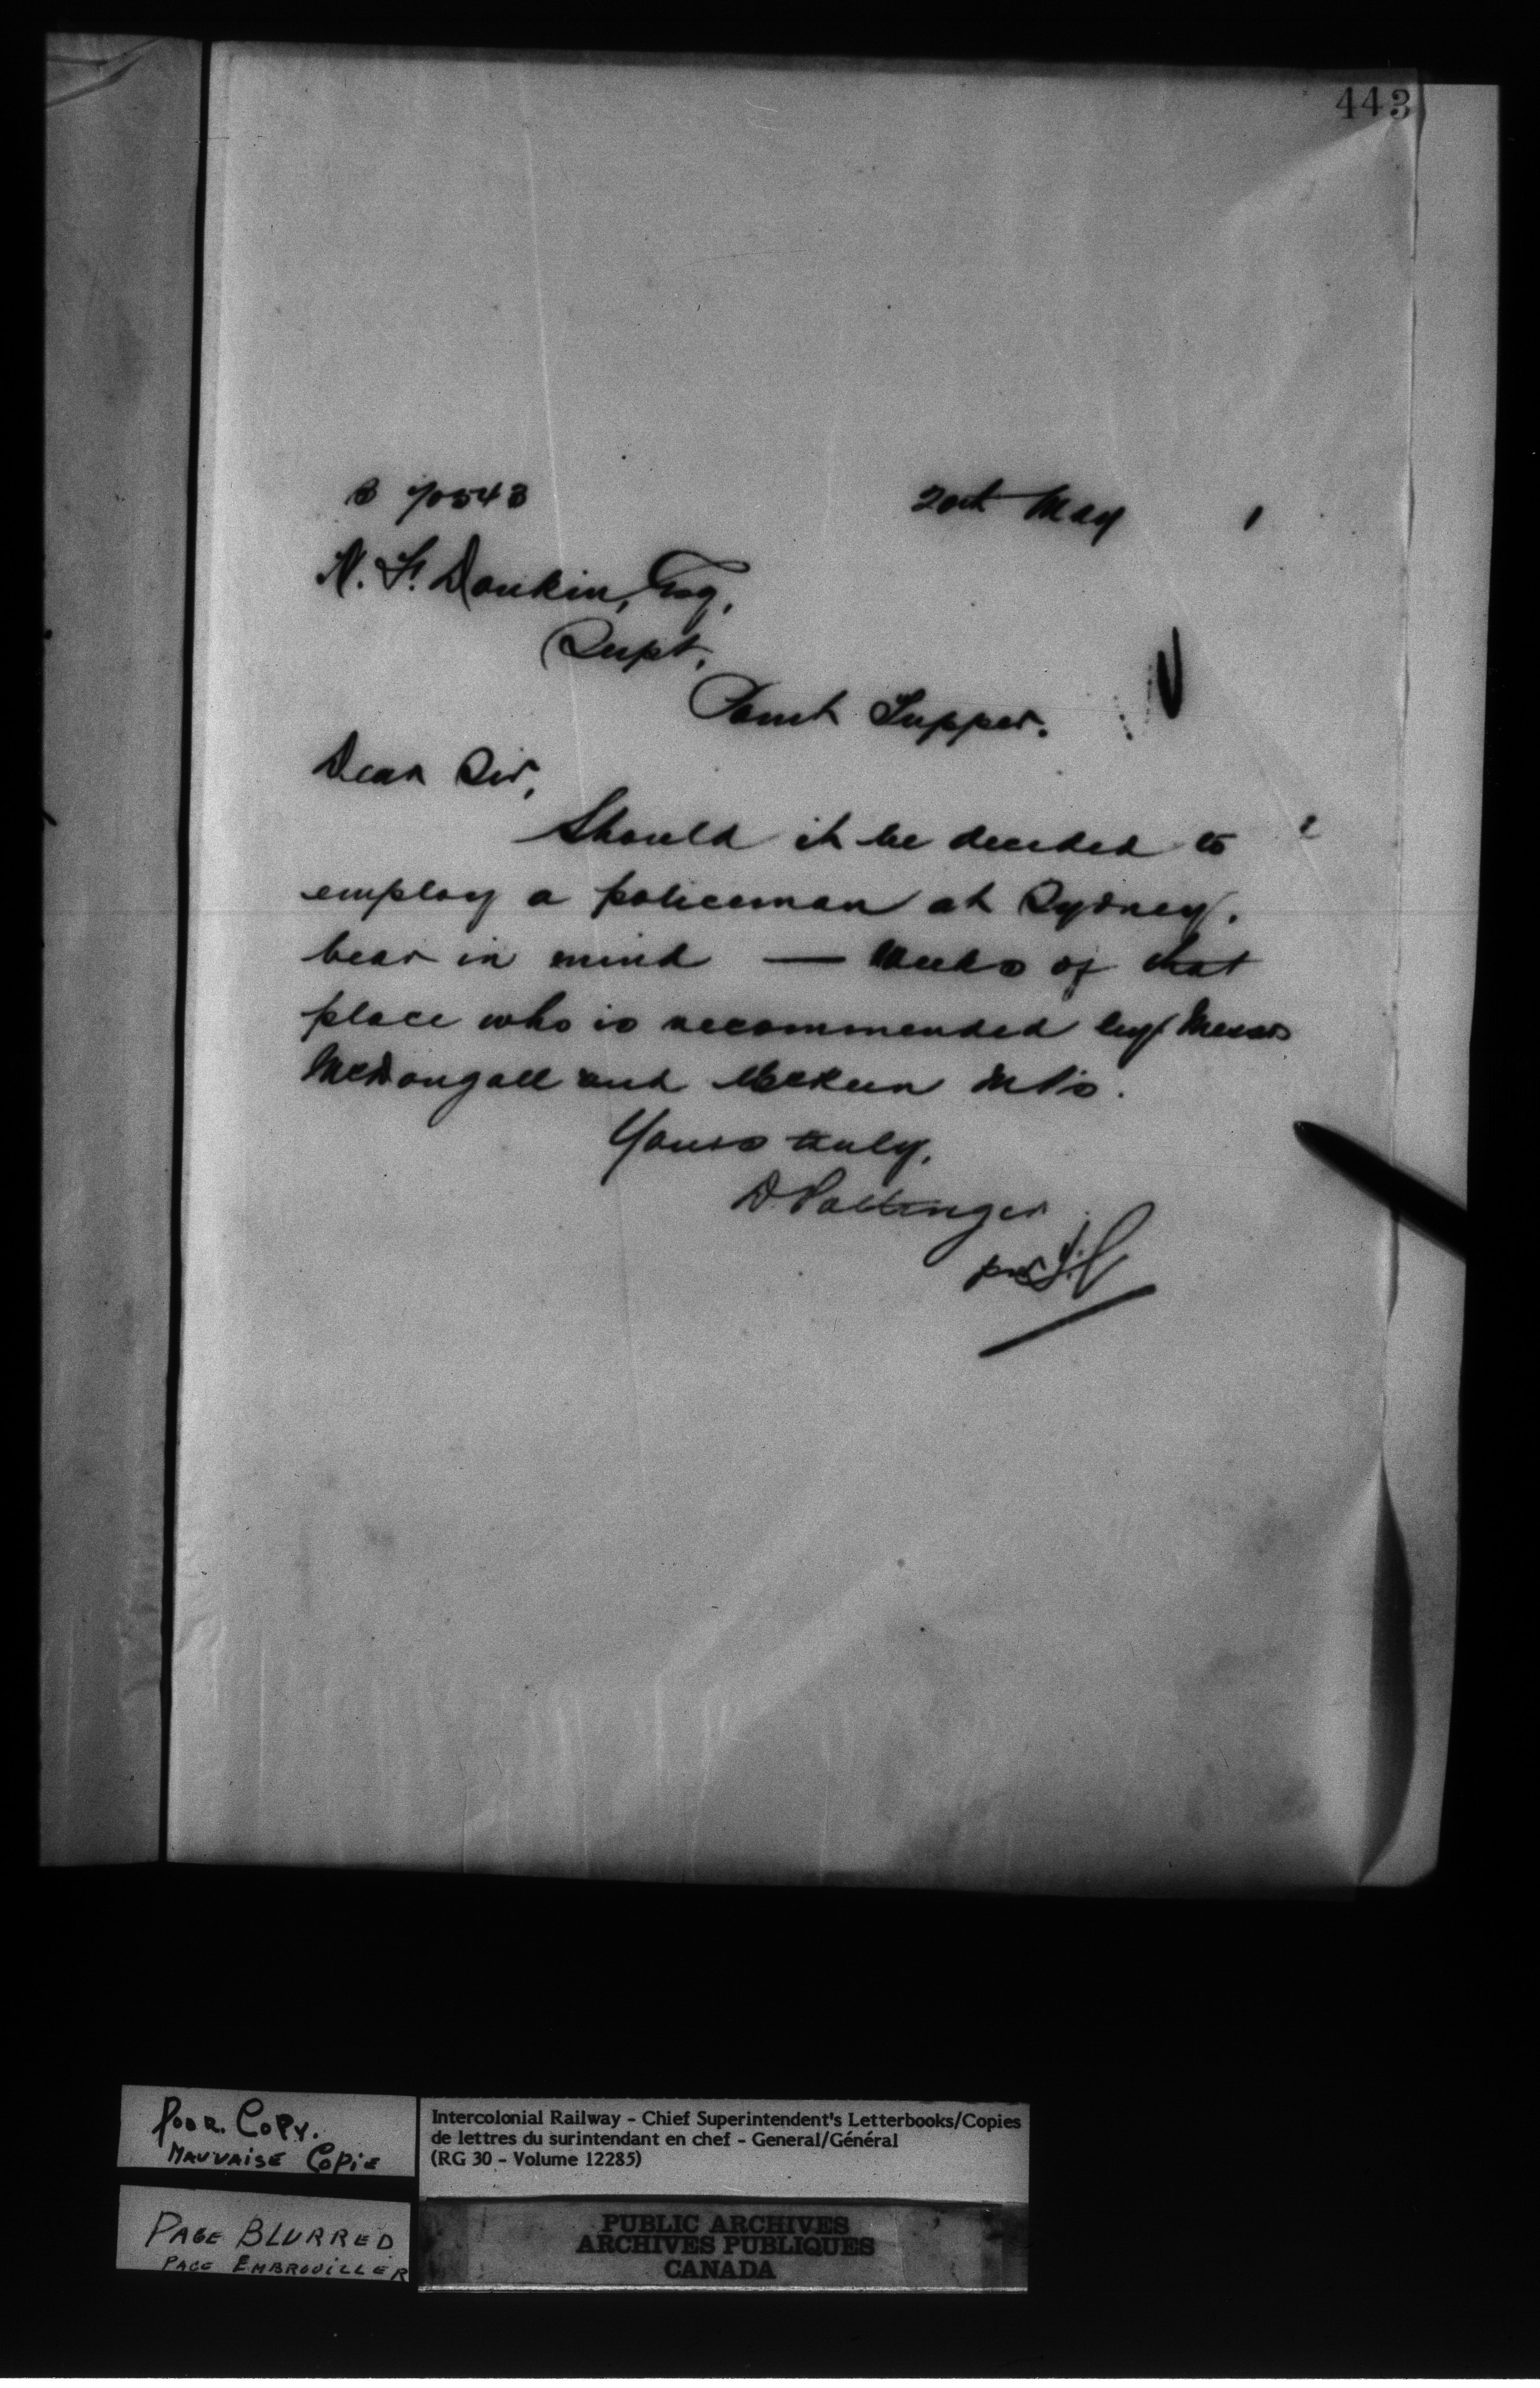 443
B 70543 20th May 1
N. F. Donkin, Esq,
Supt,
Point Tupper.
Dear Sir,
Should it be decided to
employ a policeman at Sydney,
bear in mind — Weeks of that
place who is recommended by Messrs
McDougall and McKeen MPs.
Yours truly,
D Pottinger
per
POOR COPY.
MAUVAISE COPIE
PAGE BLURRED
PAGE EMBROUILLER
Intercolonial Railway - Chief Superintendent's Letterbooks/Copies
de lettres du surintendant en chef - General/Général
(RG 30 - Volume 12285)
PUBLIC ARCHIVES
ARCHIVES PUBLIQUES
CANADA